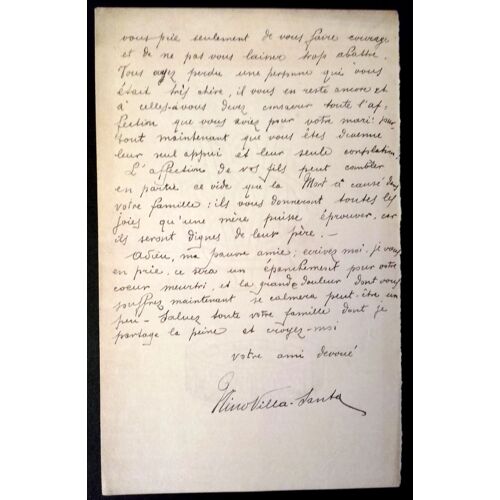 vous prie seulement de vous faire courage
et de ne pas vous laisser trop abattre.
Vous avez perdu une personne qui vous
était très chère, il vous en reste encore et
à celles-à vous devez conserver toute l'af-
fection que vous aviez pour votre mari: sur-
tout maintenant que vous êtes devenue
leur seul appui et leur seule consolation.
L'affection de vos fils peut combler
en partie ce vide que la Mort a causé dans
votre famille: ils vous donneront toutes les
joies qu'une mère puisse éprouver, car
ils seront dignes de leur père. —
Adieu, ma pauvre amie; ecrivez moi, je vous
en prie, ce sera un épanchement pour votre
coeur meurtri, et la grande douleur dont vous
souffrez maintenant se calmera peut-être un
peu — Saluez toute votre famille dont je
partage la peine et croyez-moi
votre ami devoué
Villa-Santa